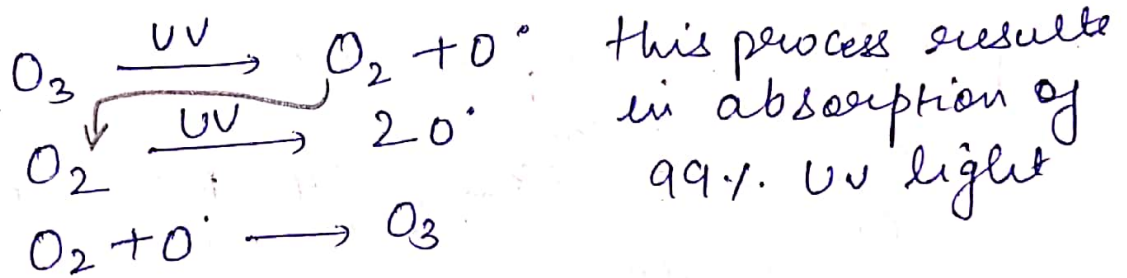 O₃ UV → O₂ + O˙
O₂ UV → 2O˙
O₂ + O˙ → O₃
this process results
in absorption of
99%. UV light